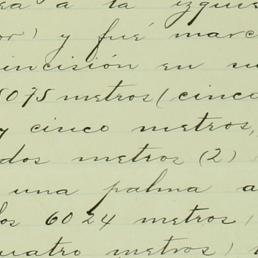 a a la izquie
or) y fué marc
incisión en su
5075 metros (cinco
y cinco metros,
dos metros (2)
una palma a
los 6024 metros (
cuatro metros)